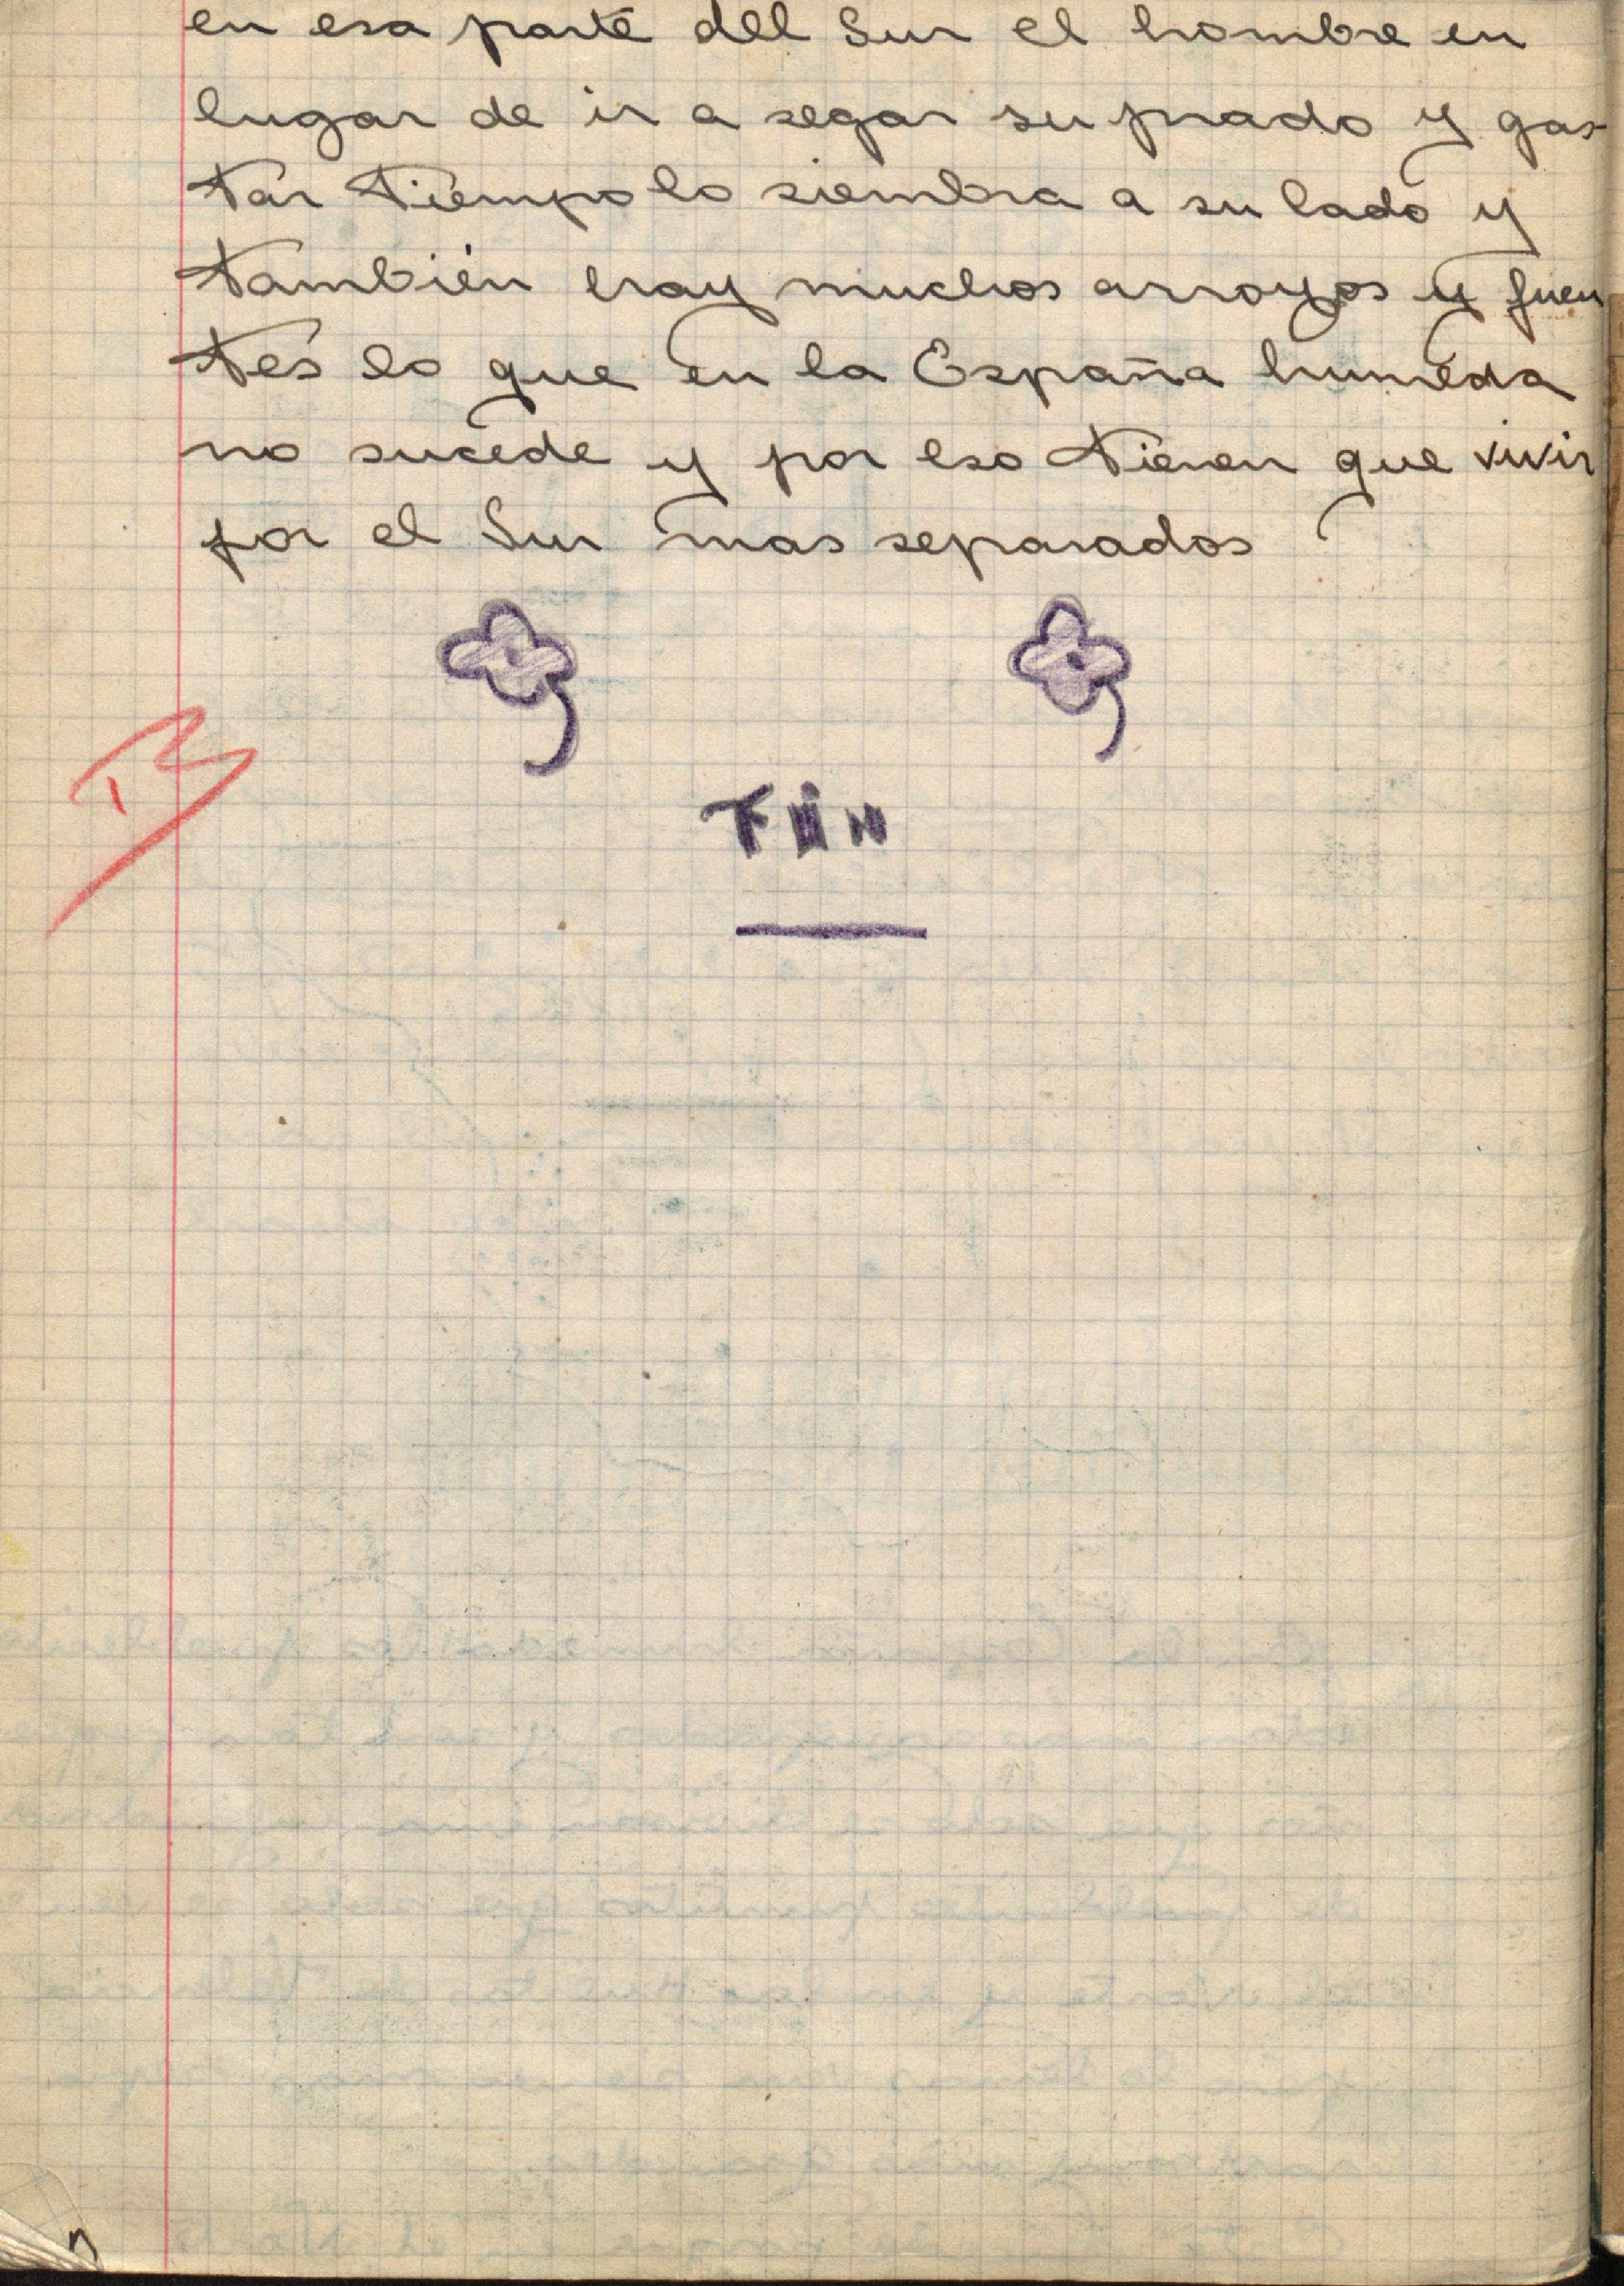 en esa parte del Sur el hombre en
lugar de ir a segar su prado y gas-
tar tiempo lo siembra a su lado y
también hay muchos arroyos y fuen
tes lo que en la España humeda
no sucede y por eso tienen que vivir
por el Sur mas separados
FIN